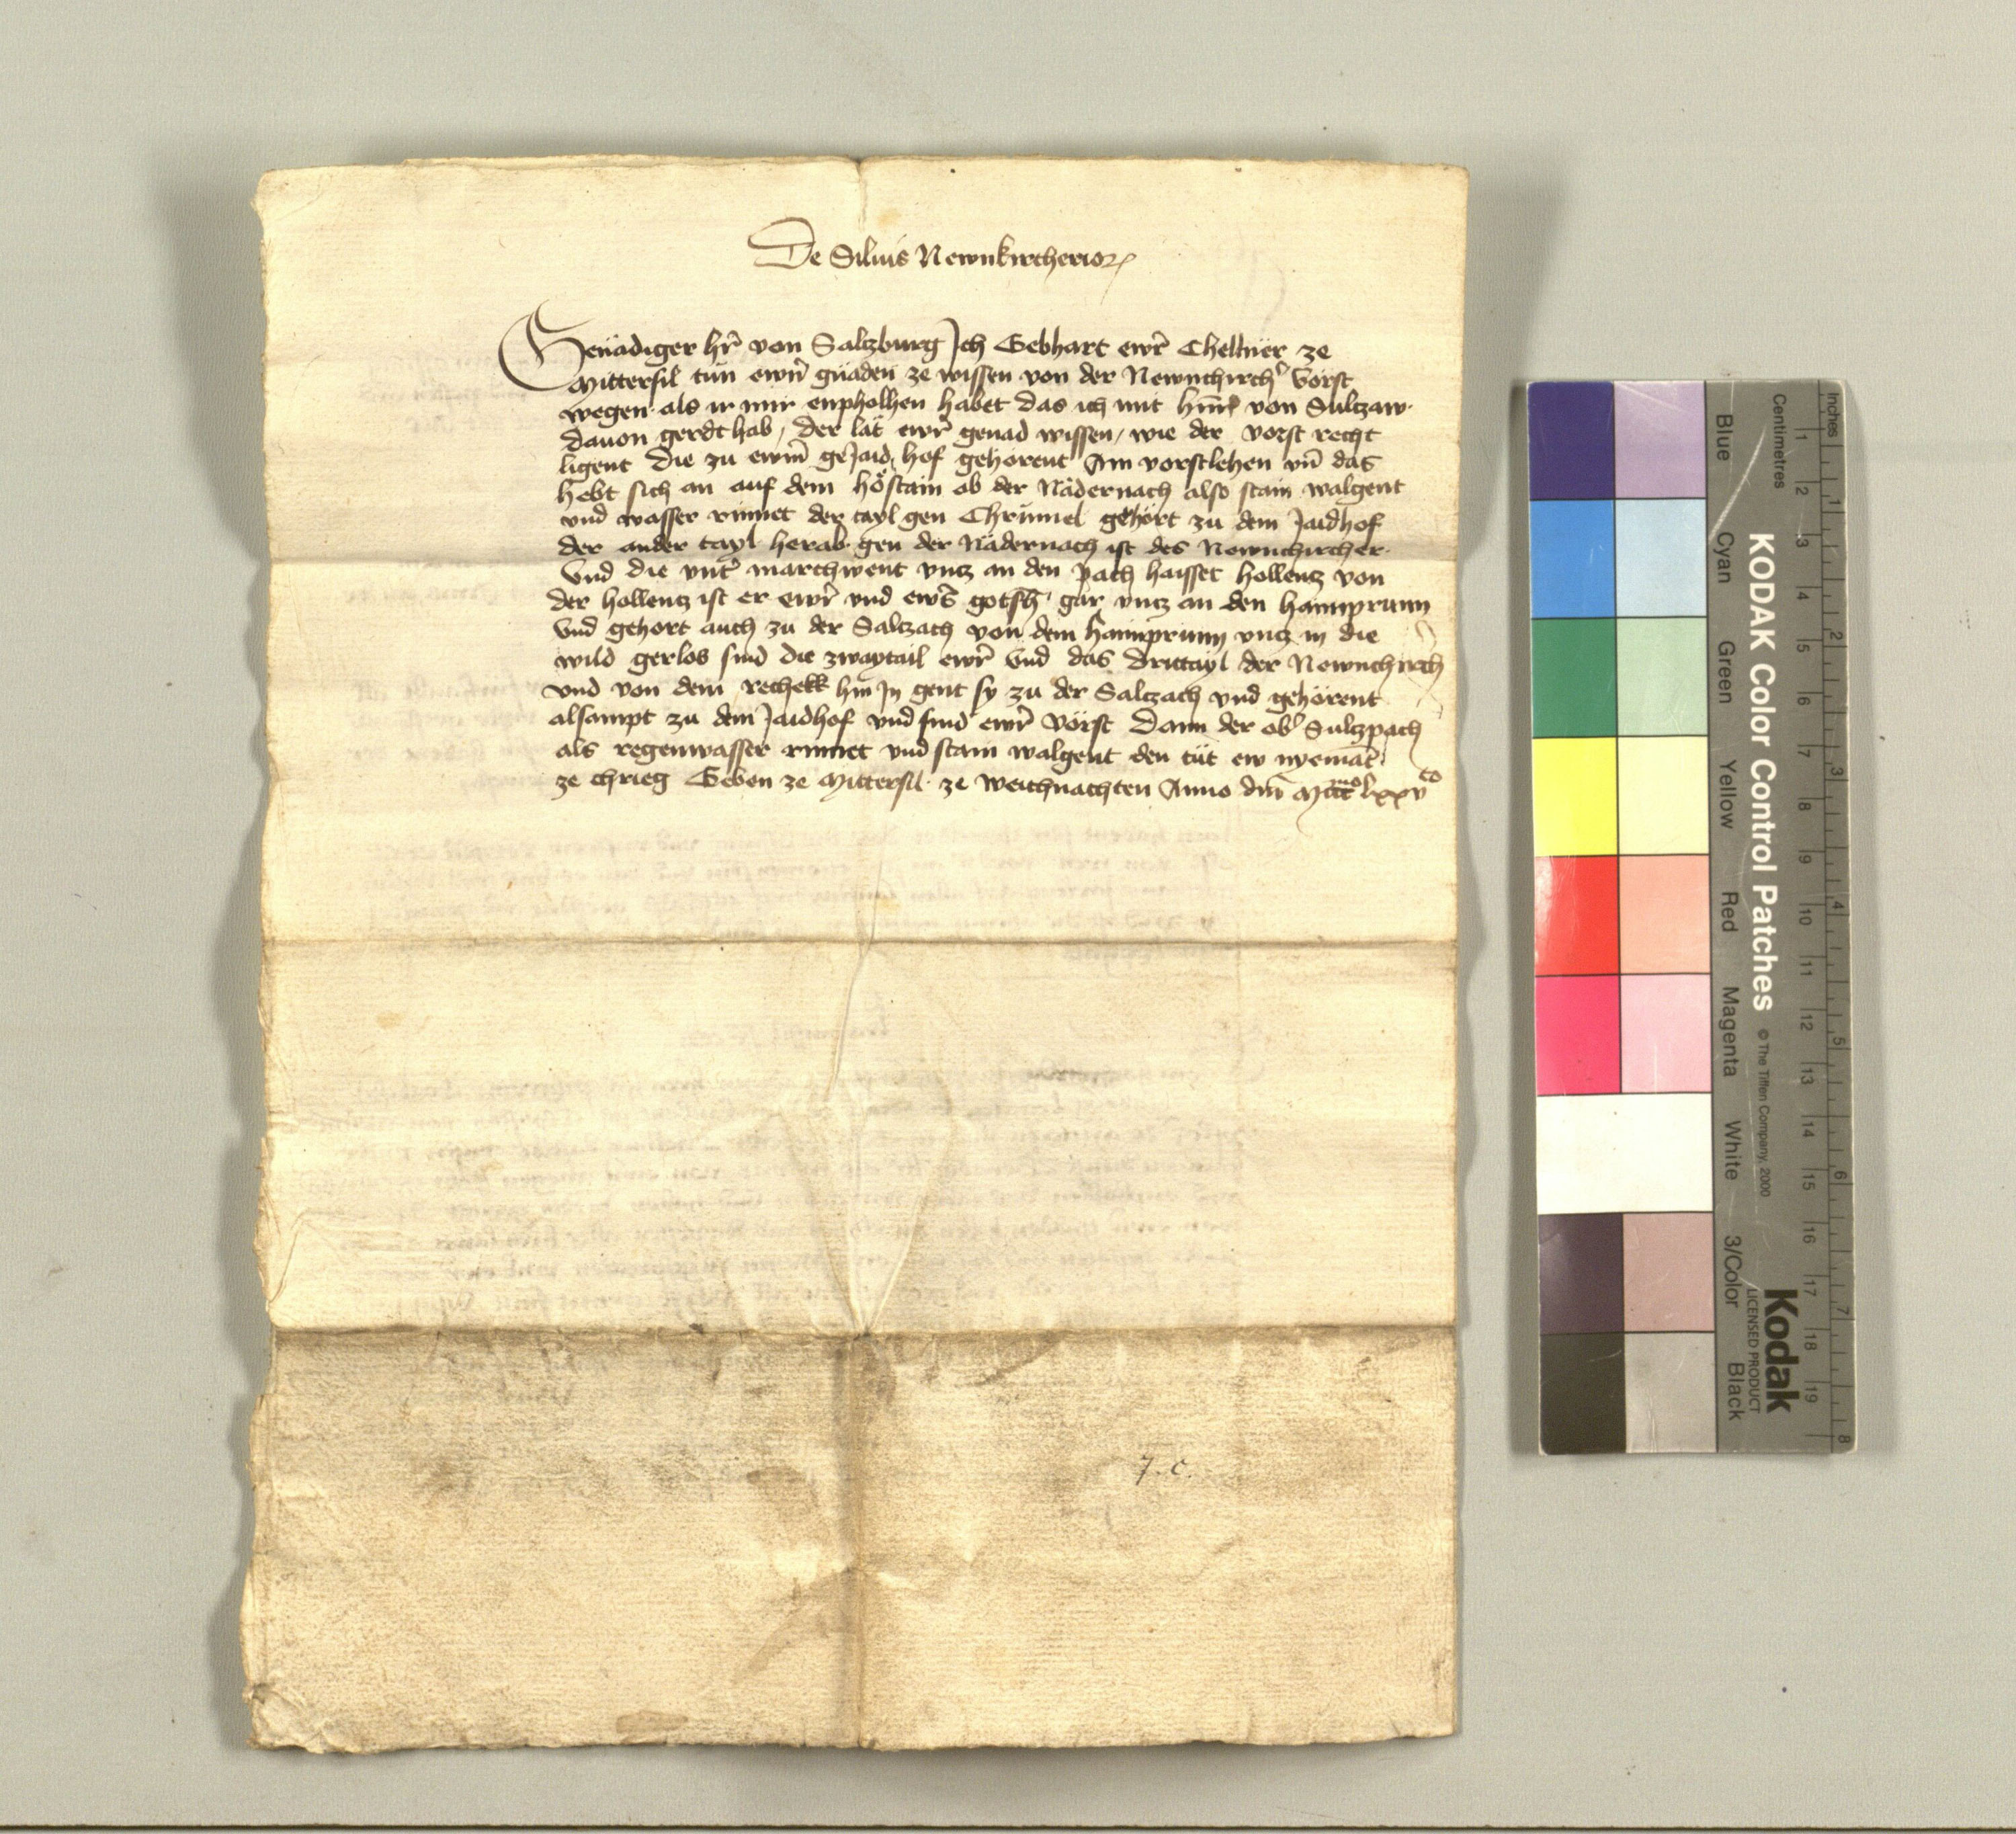 De Siluis Newnkircherior
Genadiger hr̄ von Salczburg Ich Gebhart ewr̄ Chellner ze
Mittersil tün ewrn̄ gnaden ze wissen von der Newnchirch' vörst
wegen als ir mir enpholhen habet das ich mit von Sulczaw
dauon geredt hab / der lät ewr̄ genad wissen / wie der vorst recht
ligent die zu ewrm̄ geJaid hof gehörent Ain vorstlehen vn̄ das
hebt sich an auf dem höstain ob der Nädernach also stain walgent
vnd wasser rinnet der tayl gen Chrümel gehört zu dem Jaidhof
der ander tayl herab gen der Nädernach ist des Newnchircher
Vnd die vnt' marchwent vncz an den pach haisset hollencz von
der hollencz ist er ewr̄ vnd ewrs̄ gotsh' gar vncz an den hannprunn
vnd gehort auch zu der Salczach von dem hannprunn vncz in die
wild gerlos sind die zwaytail ewr̄ vnd das drittayl der Newnchirch
vnd von dem rechekk hin Jn gent sy zu der Salczach vnd gehörent
alsampt zu dem Jaidhof vnd sind ewr̄ vörst Dann der ob' Sulzpach
als regenwasser rinnet vnd stain walgent den tüt ew nyemāt
ze chrieg Geben ze Mittersil ze weichnachten Anno dm̄ Mccc^mo lxxv^to
7. c.
Inches
Centimetres
1 2 3 4 5 6 7 8 9 10 11 12 13 14 15 16 17 18 19
1 2 3 4 5 6 7 8
KODAK Color Control Patches
© The Tiffen Company, 2000
Kodak
LICENSED PRODUCT
Blue Cyan Green Yellow Red Magenta White 3/Color Black